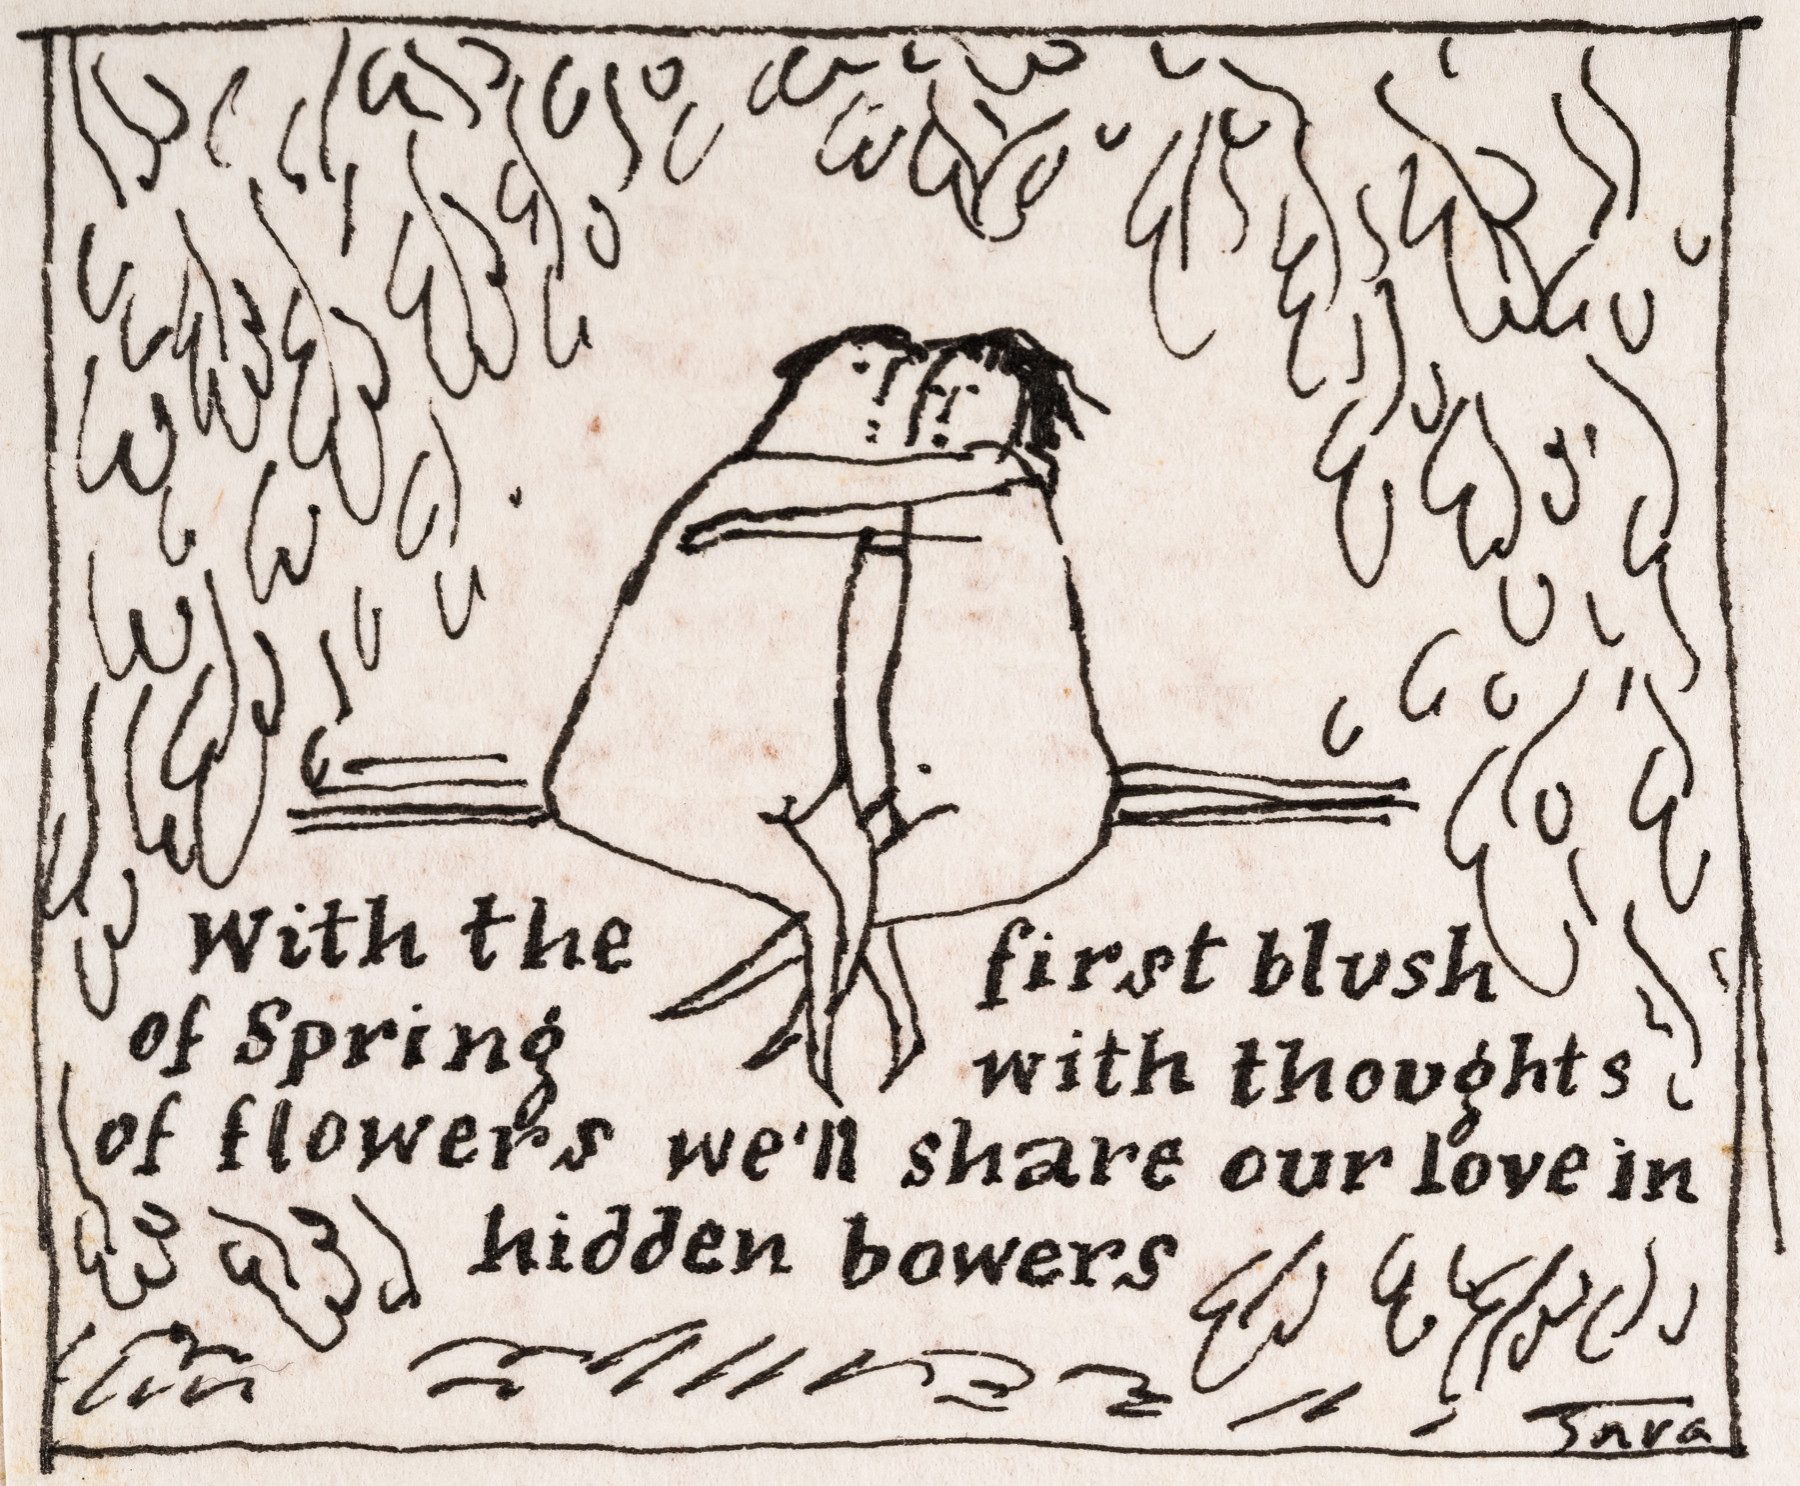 With the first blush
of Spring with thoughts
of flowers we'll share our love in
hidden bowers